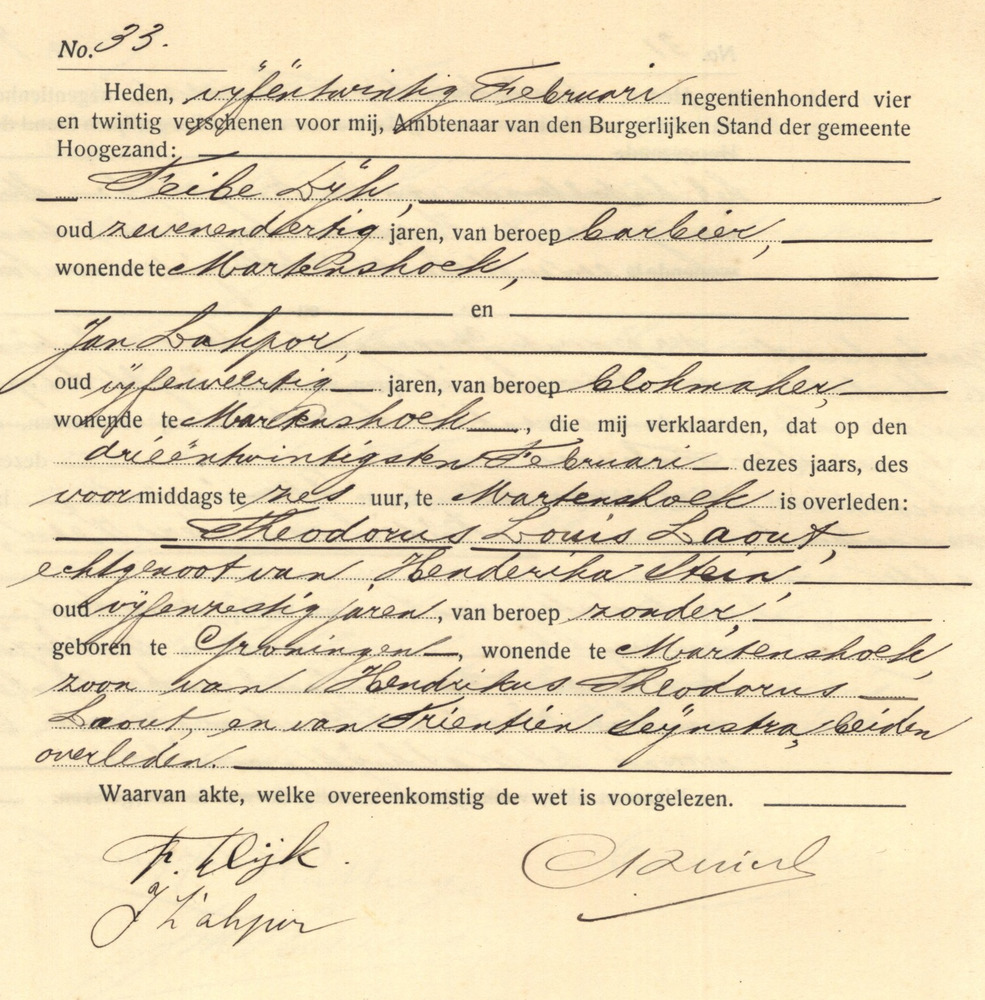 No. 33.
Heden, vijfentwintig Februari negentienhonderd vier
en twintig verschenen voor mij, Ambtenaar van den Burgerlijken Stand der gemeente
Hoogezand:
Feibe Dijk,
oud zevenendertig jaren, van beroep barbier,
wonende te Martenshoek,
en
Jan Lahpor,
oud vijfenveertig jaren, van beroep klokmaker,
wonende te Martenshoek, die mij verklaarden, dat op den
drieëntwintigsten Februari dezes jaars, des
voormiddags te zes uur, te Martenshoek is overleden:
Theodorus Louis Laout,
echtgenoot van Henderika Stein,
oud vijfenzestig jaren, van beroep zonder,
geboren te Groningen, wonende te Martenshoek,
zoon van Hendrikus Theodorus
Laout, en van Trientien Seijnstra, beiden
overleden.
Waarvan akte, welke overeenkomstig de wet is voorgelezen.
F. Dijk.
J Lahpor